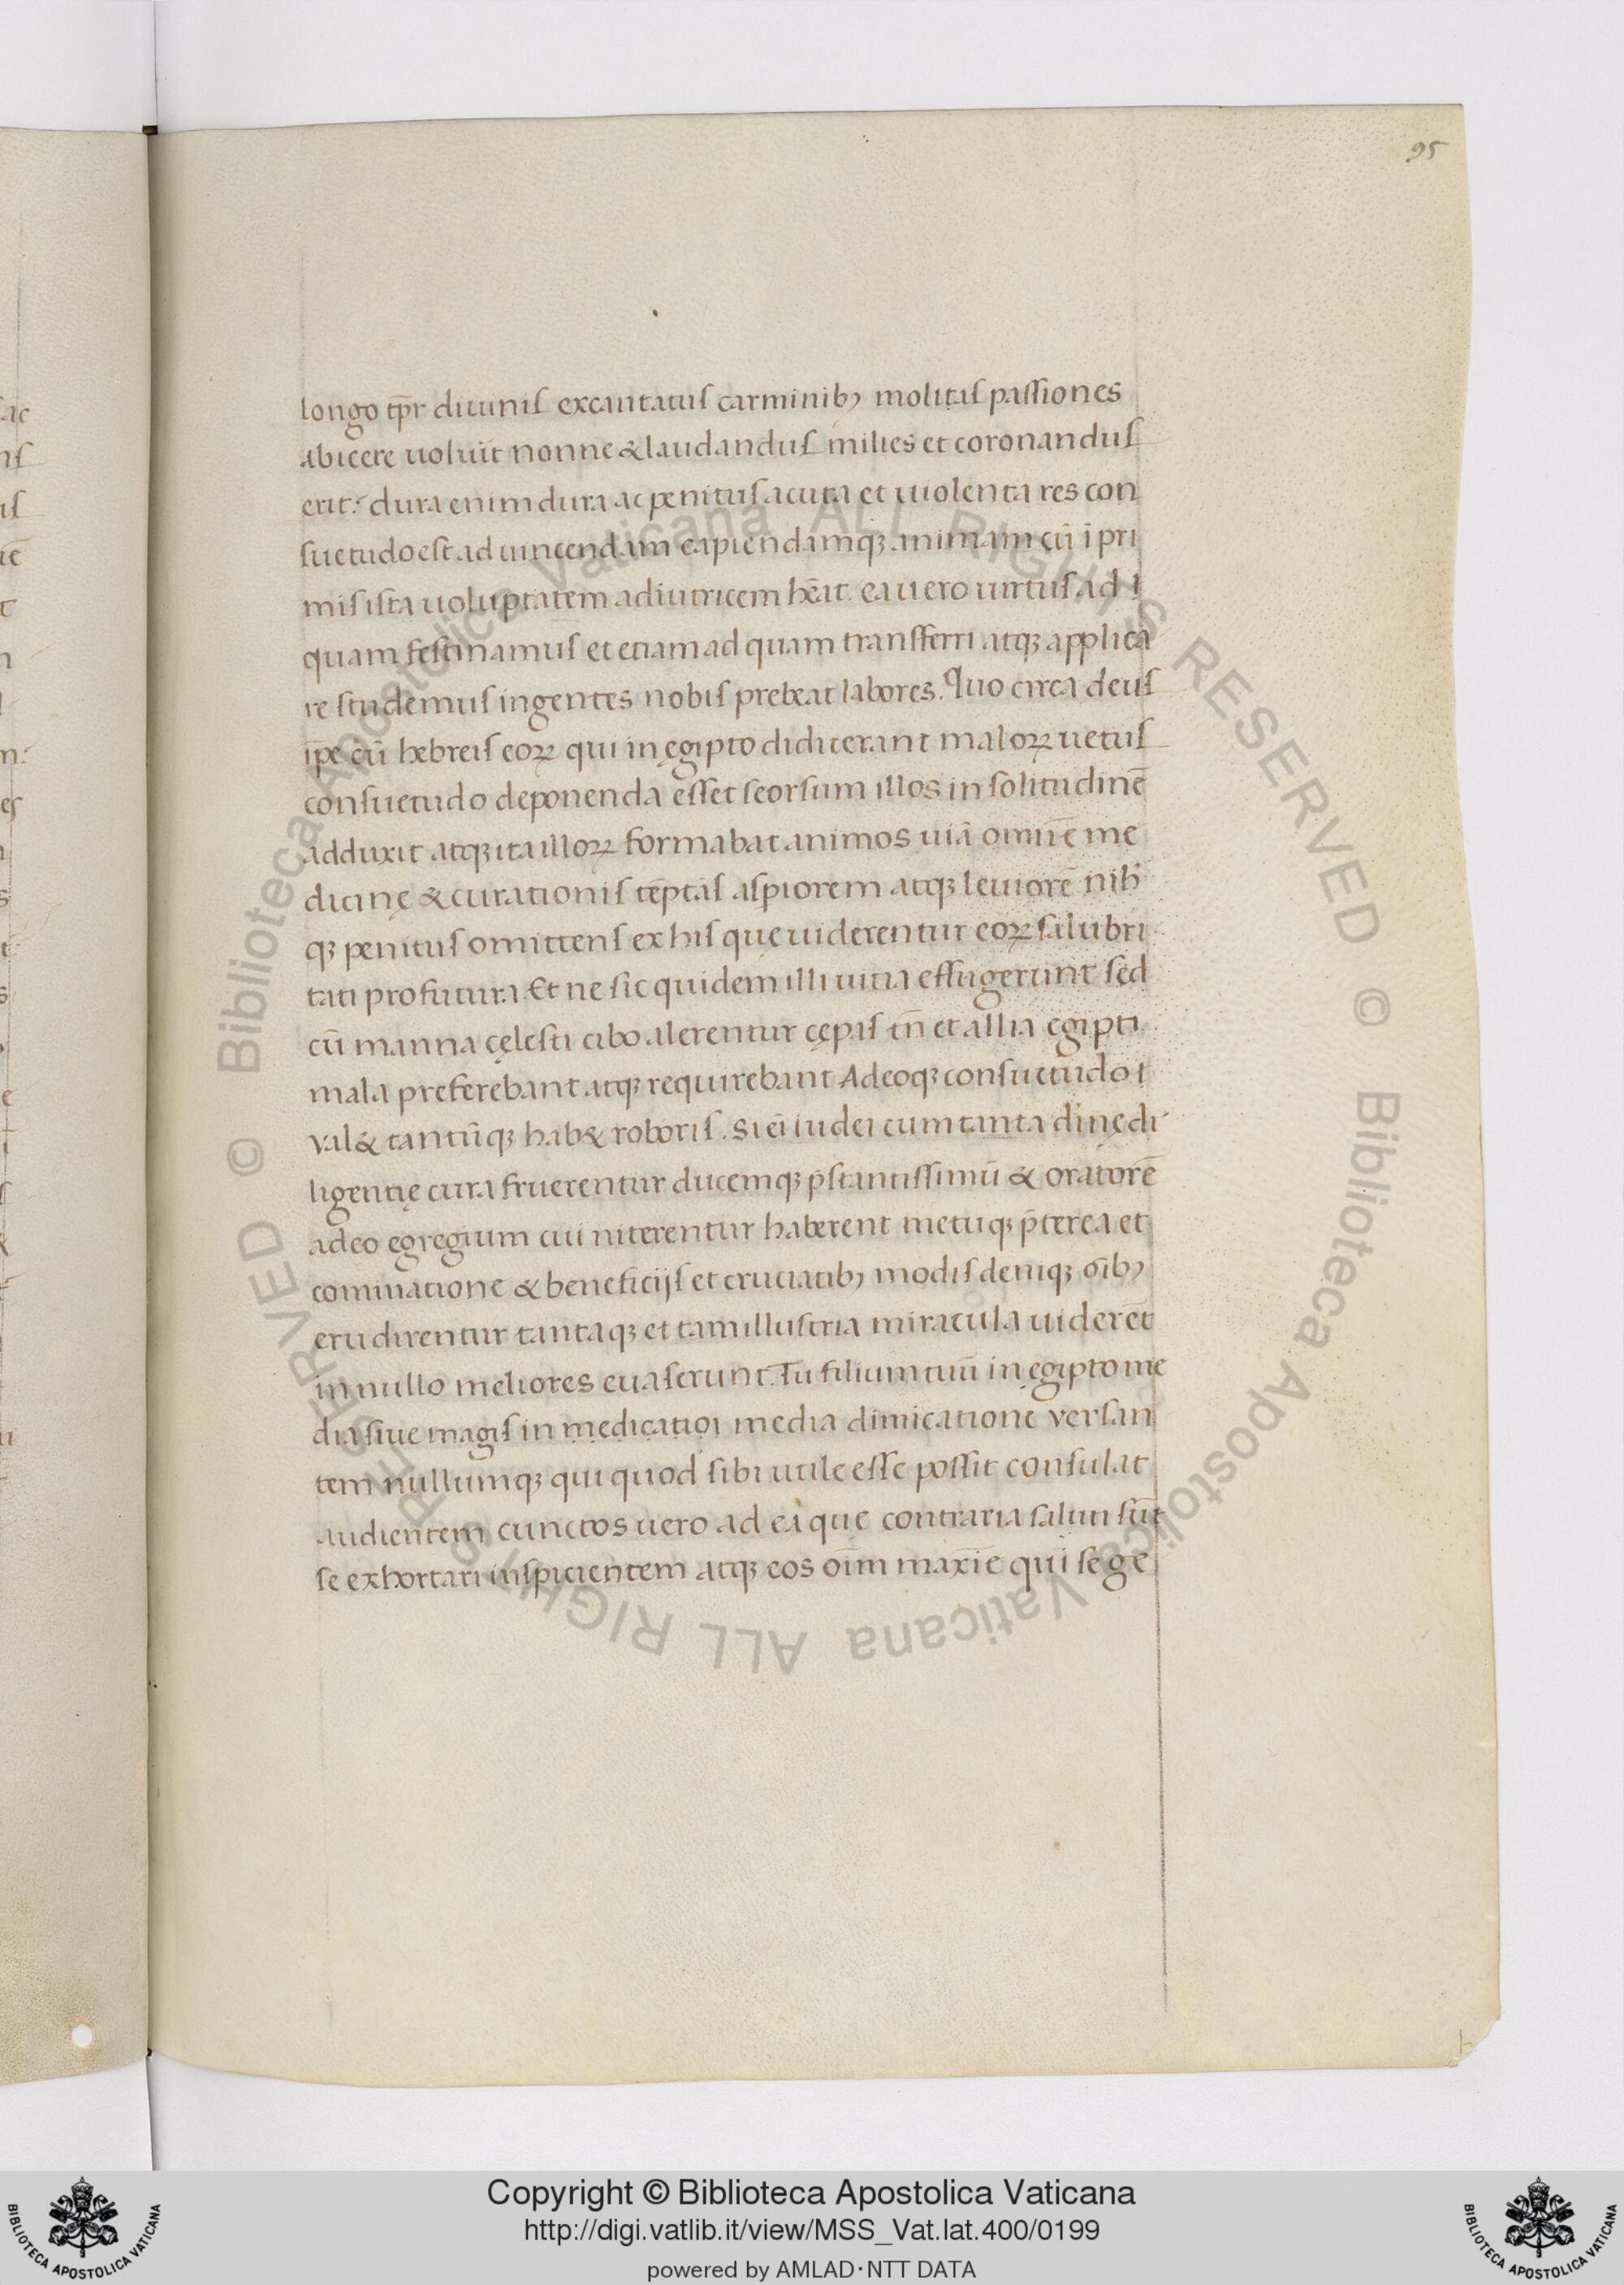 95
longo tp̄r diuinis excantatus carminib; molitas passiones
abicere uoluit nonne & laudandus milies et coronandus
erit? dura enim dura ac penitus acuta et uiolenta res con
suetudo est ad uincendam capiendamq; animam cū ī pri
mis ista uoluptatem adiutricem hēat. ea uero uirtus ad
quam festinamus et etiam ad quam transferri atq; applica
re studemus ingentes nobis prebeat labores. Quo circa deus
ip̄e cū hebreis eoꝝ qui in ęgipto didicerant maloꝝ uetus
consuetudo deponenda esset seorsum illos in solitudinē
adduxit atq; ita illoꝝ formabat animos uiā omnē me
dicinę & curationis tēptās aspiorem atq; leuiorē nih̄
q; penitus omittens ex his que uiderentur eoꝝ salubri
tati profutura. Et ne sic quidem illi uitia effugerunt sed
cū manna cęlesti cibo alerentur cępas tn̄ et allia egipti
mala preferebant atq; requirebant Adeoq; consuetudo
val& tantūq; hab& roboris. Si eī iudei cum tanta diuinę di
ligentię cura fruerentur ducemq; p̄stantissimū & oratorē
adeo egregium cui niterentur haberent metuq; p̄terea et
cominatione & beneficijs et cruciatib; modis deniq; oīb;
erudirentur tantaq; et tam illustria miracula uiderēt
in nullo meliores euaserunt. Tu filium tuū in ęgipto me
dia siue magis in media dimicatione versan
tem nullumq; qui quod sibi utile esse possit consulat
audientem cunctos uero ad ea quę contraria saluti sūt
se exhortari inspicientem atq; eos oīm maxīe qui se ge
b
ALL RIGHTS RESERVED © Biblioteca Apostolica Vaticana ALL RIGHTS RESERVED © Biblioteca Apostolica Vaticana
Copyright © Biblioteca Apostolica Vaticana
http://digi.vatlib.it/view/MSS_Vat.lat.400/0199
powered by AMLAD·NTT DATA
BIBLIOTECA APOSTOLICA VATICANA
BIBLIOTECA APOSTOLICA VATICANA